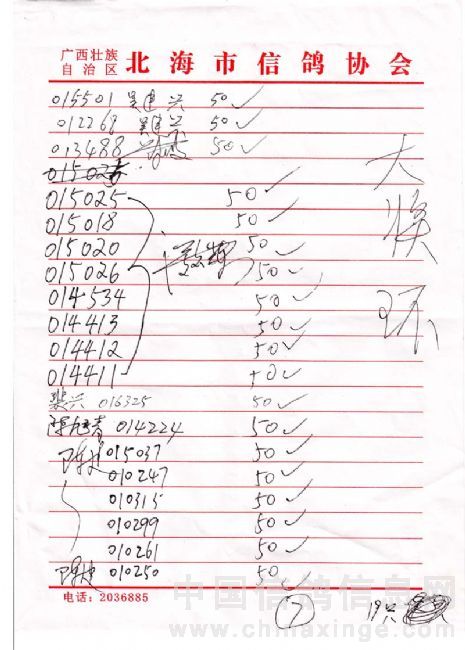 广西壮族
自治区 北海市信鸽协会
015501 吴建兴 50 ✓
012268 吴建兴 50 ✓
013488 50 ✓
015025 50 ✓
015018 50 ✓
015020 50 ✓
015026 50 ✓
014534 50 ✓
014413 50 ✓
014412 50 ✓
014411 50 ✓
大
换
环
016325 50 ✓
014224 50 ✓
015037 50 ✓
010247 50 ✓
010315 50 ✓
010299 50 ✓
010261 50 ✓
010250 50 ✓
电话:2036885
7
中国信鸽信息网
www.chinaxinge.com